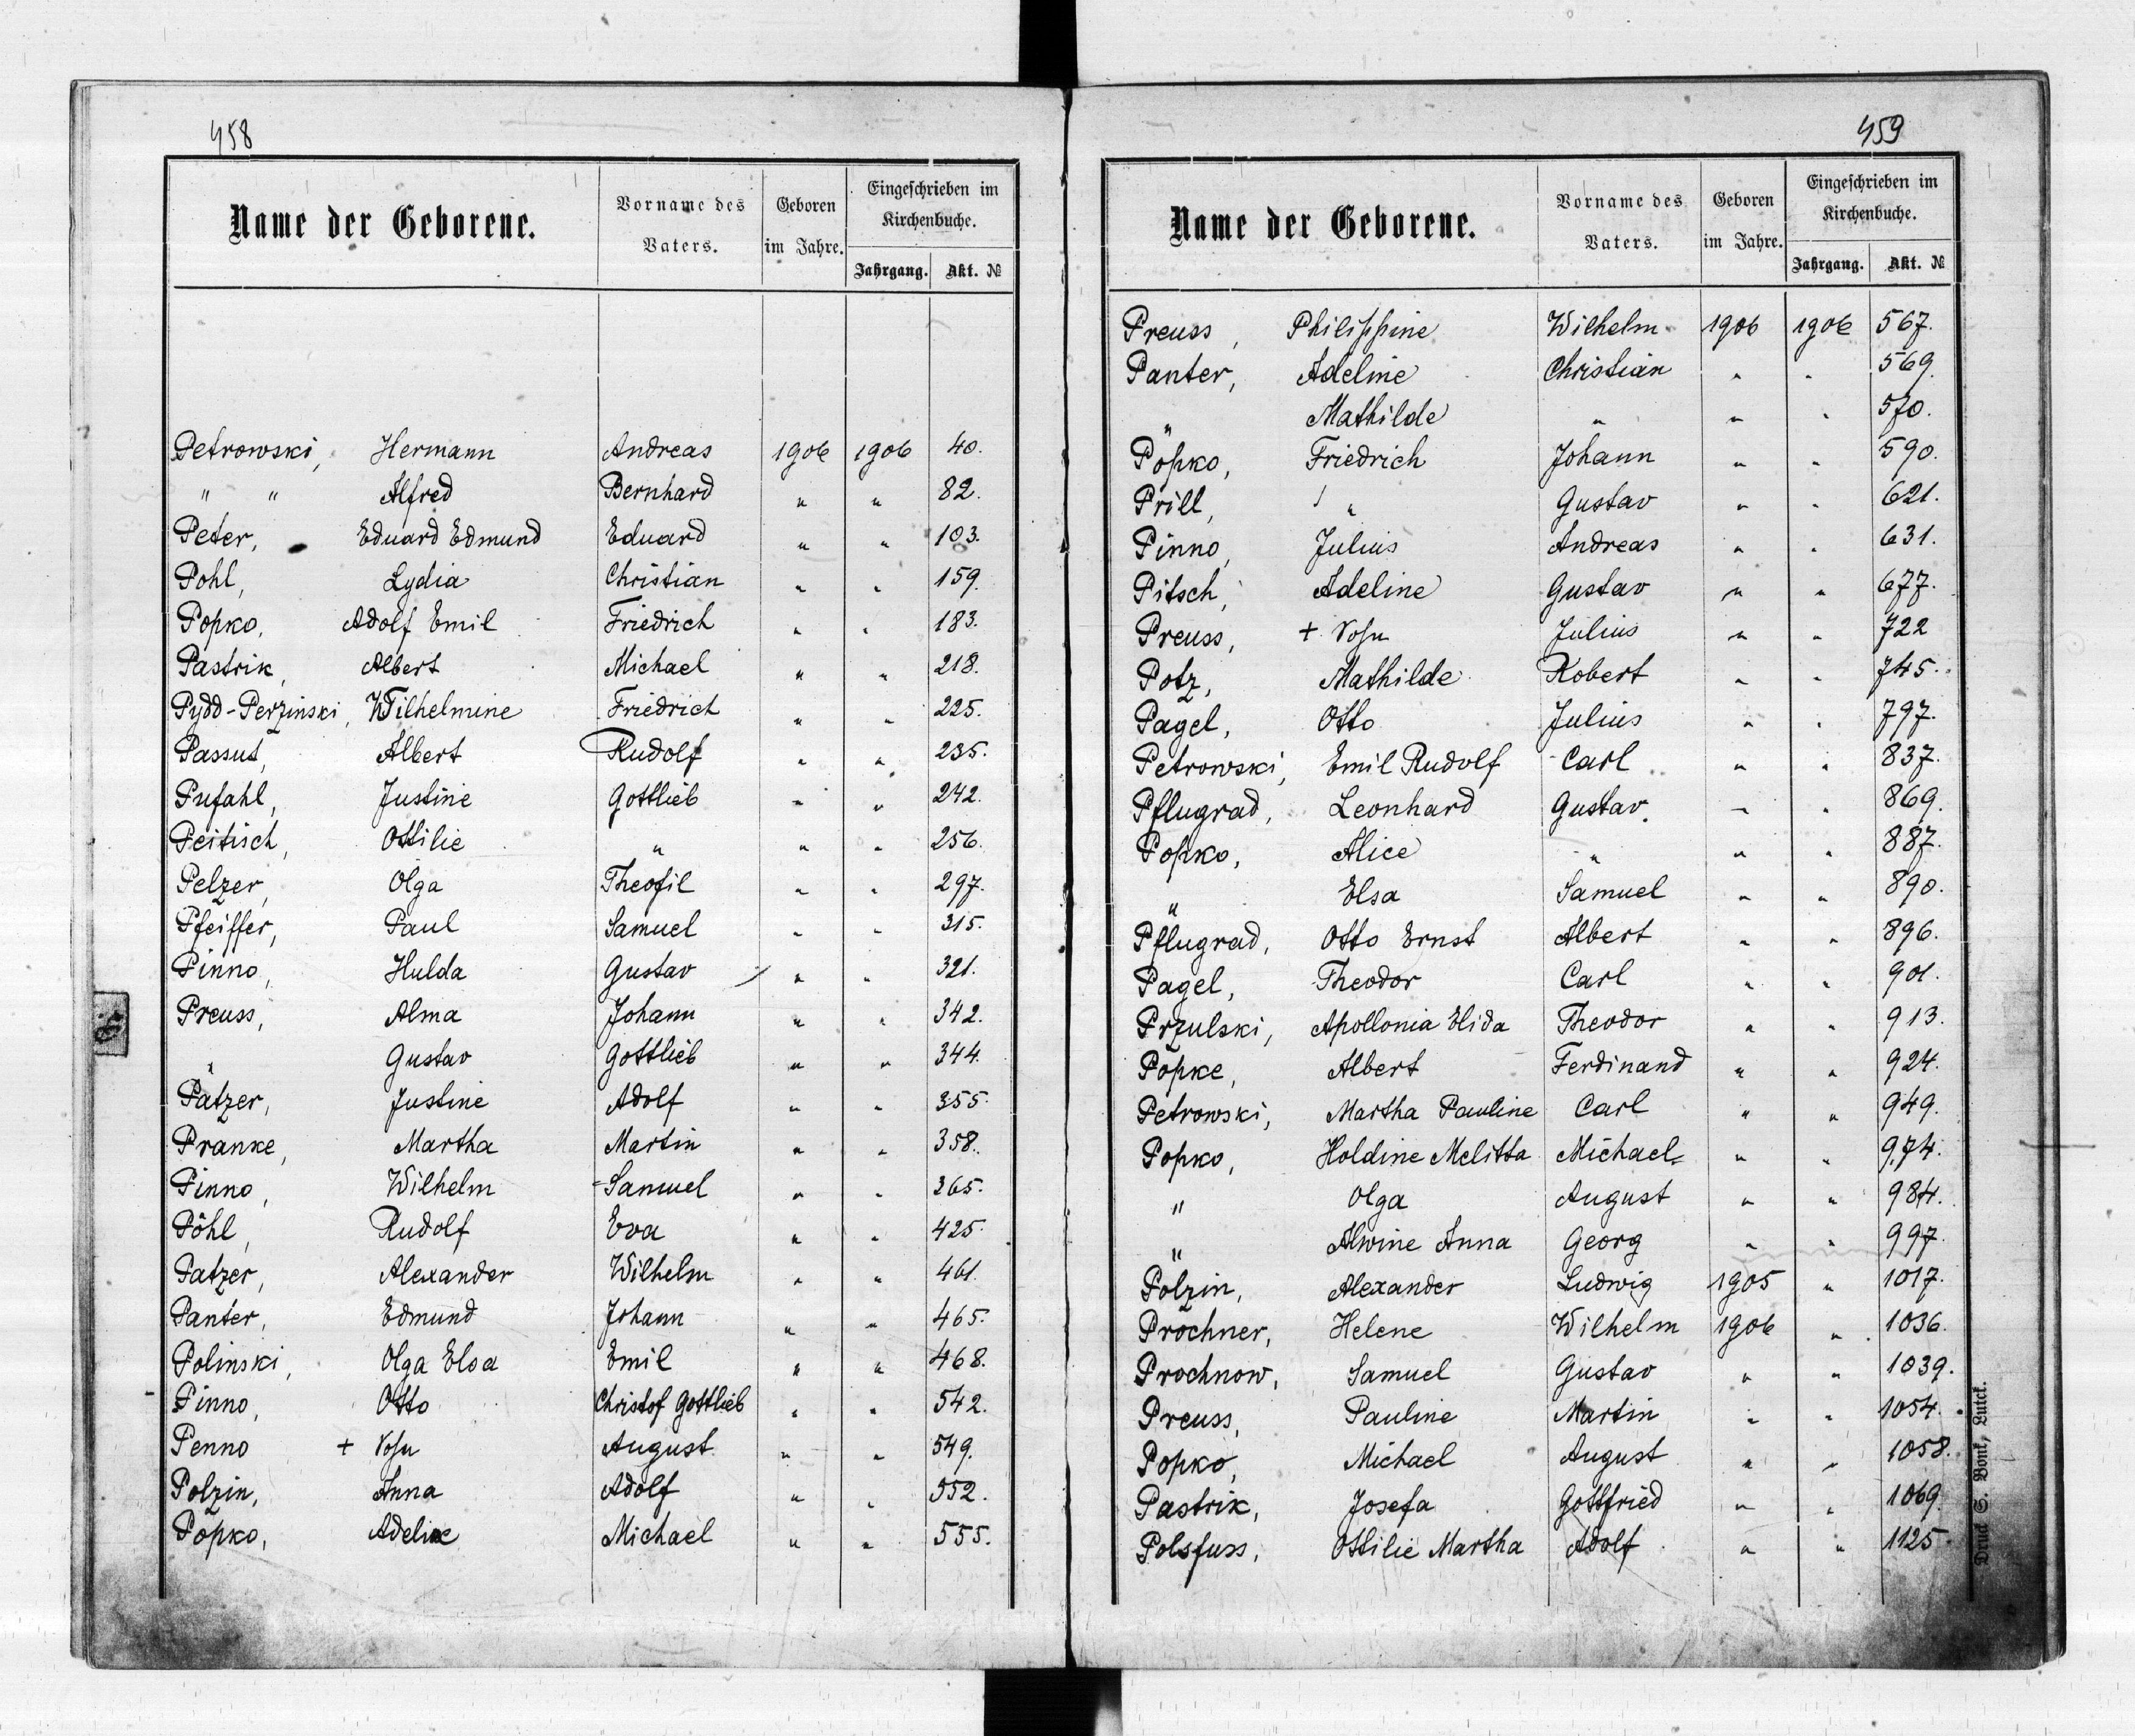 458
Name der Geborene. Vorname des Vaters. Geboren im Jahre. Eingeschrieben im Kirchenbuche. Jahrgang. Akt. №
Petrowski, Hermann Andreas 1906 1906 40.
" " Alfred Bernhard " " 82.
Peter, Eduard Edmund Eduard " " 103.
Pohl, Lydia Christian " " 159.
Popko, Adolf Emil Friedrich " " 183.
Pastrik, Albert Michael " " 218.
Pydd-Perzinski, Wilhelmine Friedrich " " 225.
Passut, Albert Rudolf " " 235.
Pufahl, Justine Gottlieb " " 242.
Peitisch, Ottilie " " " 256.
Pelzer, Olga Theofil " " 297.
Pfeiffer, Paul Samuel " " 315.
Pinno, Hulda Gustav " " 321.
Preuss, Alma Johann " " 342.
" Gustav Gottlieb " " 344.
Patzer, Justine Adolf " " 355.
Pranke, Martha Martin " " 358.
Pinno, Wilhelm Samuel " " 365.
Pöhl, Rudolf Eva " " 425.
Patzer, Alexander Wilhelm " " 461.
Panter, Edmund Johann " " 465.
Polinski, Olga Elsa Emil " " 468.
Pinno, Otto Christof Gottlieb " " 542.
Penno + August " " 549.
Polzin, Anna Adolf " " 552.
Popko, Adeline Michael " " 555.
459
Name der Geborene. Vorname des Vaters. Geboren im Jahre. Eingeschrieben im Kirchenbuche. Jahrgang. Akt. №
Preuss, Philippine Wilhelm 1906 1906 567.
Panter, Adeline Christian " " 569.
" Mathilde " " " 570.
Popko, Friedrich Johann " " 590.
Prill, " Gustav " " 621.
Pinno, Julius Andreas " " 631.
Pitsch, Adeline Gustav " " 677.
Preuss, + Julius " " 722
Potz, Mathilde Robert " " 745.
Pagel, Otto Julius " " 797.
Petrowski, Emil Rudolf Carl " " 837.
Pflugrad, Leonhard Gustav. " " 869.
Popko, Alice " " " 887.
" Elsa Samuel " " 890.
Pflugrad, Otto Ernst Albert " " 896.
Pagel, Theodor Carl " " 901.
Przulski, Apollonia Elida Theodor " " 913.
Popke, Albert Ferdinand " " 924.
Petrowski, Martha Pauline Carl " " 949.
Popko, Holdine Melitta Michael " " 974.
" Olga August " " 984.
" Alwine Anna Georg " " 997.
Polzin, Alexander Ludwig 1905 " 1017.
Prochner, Helene Wilhelm 1906 " 1036.
Prochnow, Samuel Gustav " " 1039.
Preuss, Pauline Martin " " 1054.
Popko, Michael August " " 1058.
Pastrik, Josefa Gottfried " " 1069.
Polsfuss, Ottilie Martha Adolf " " 1125.
Druck S. Bonk, Luck.